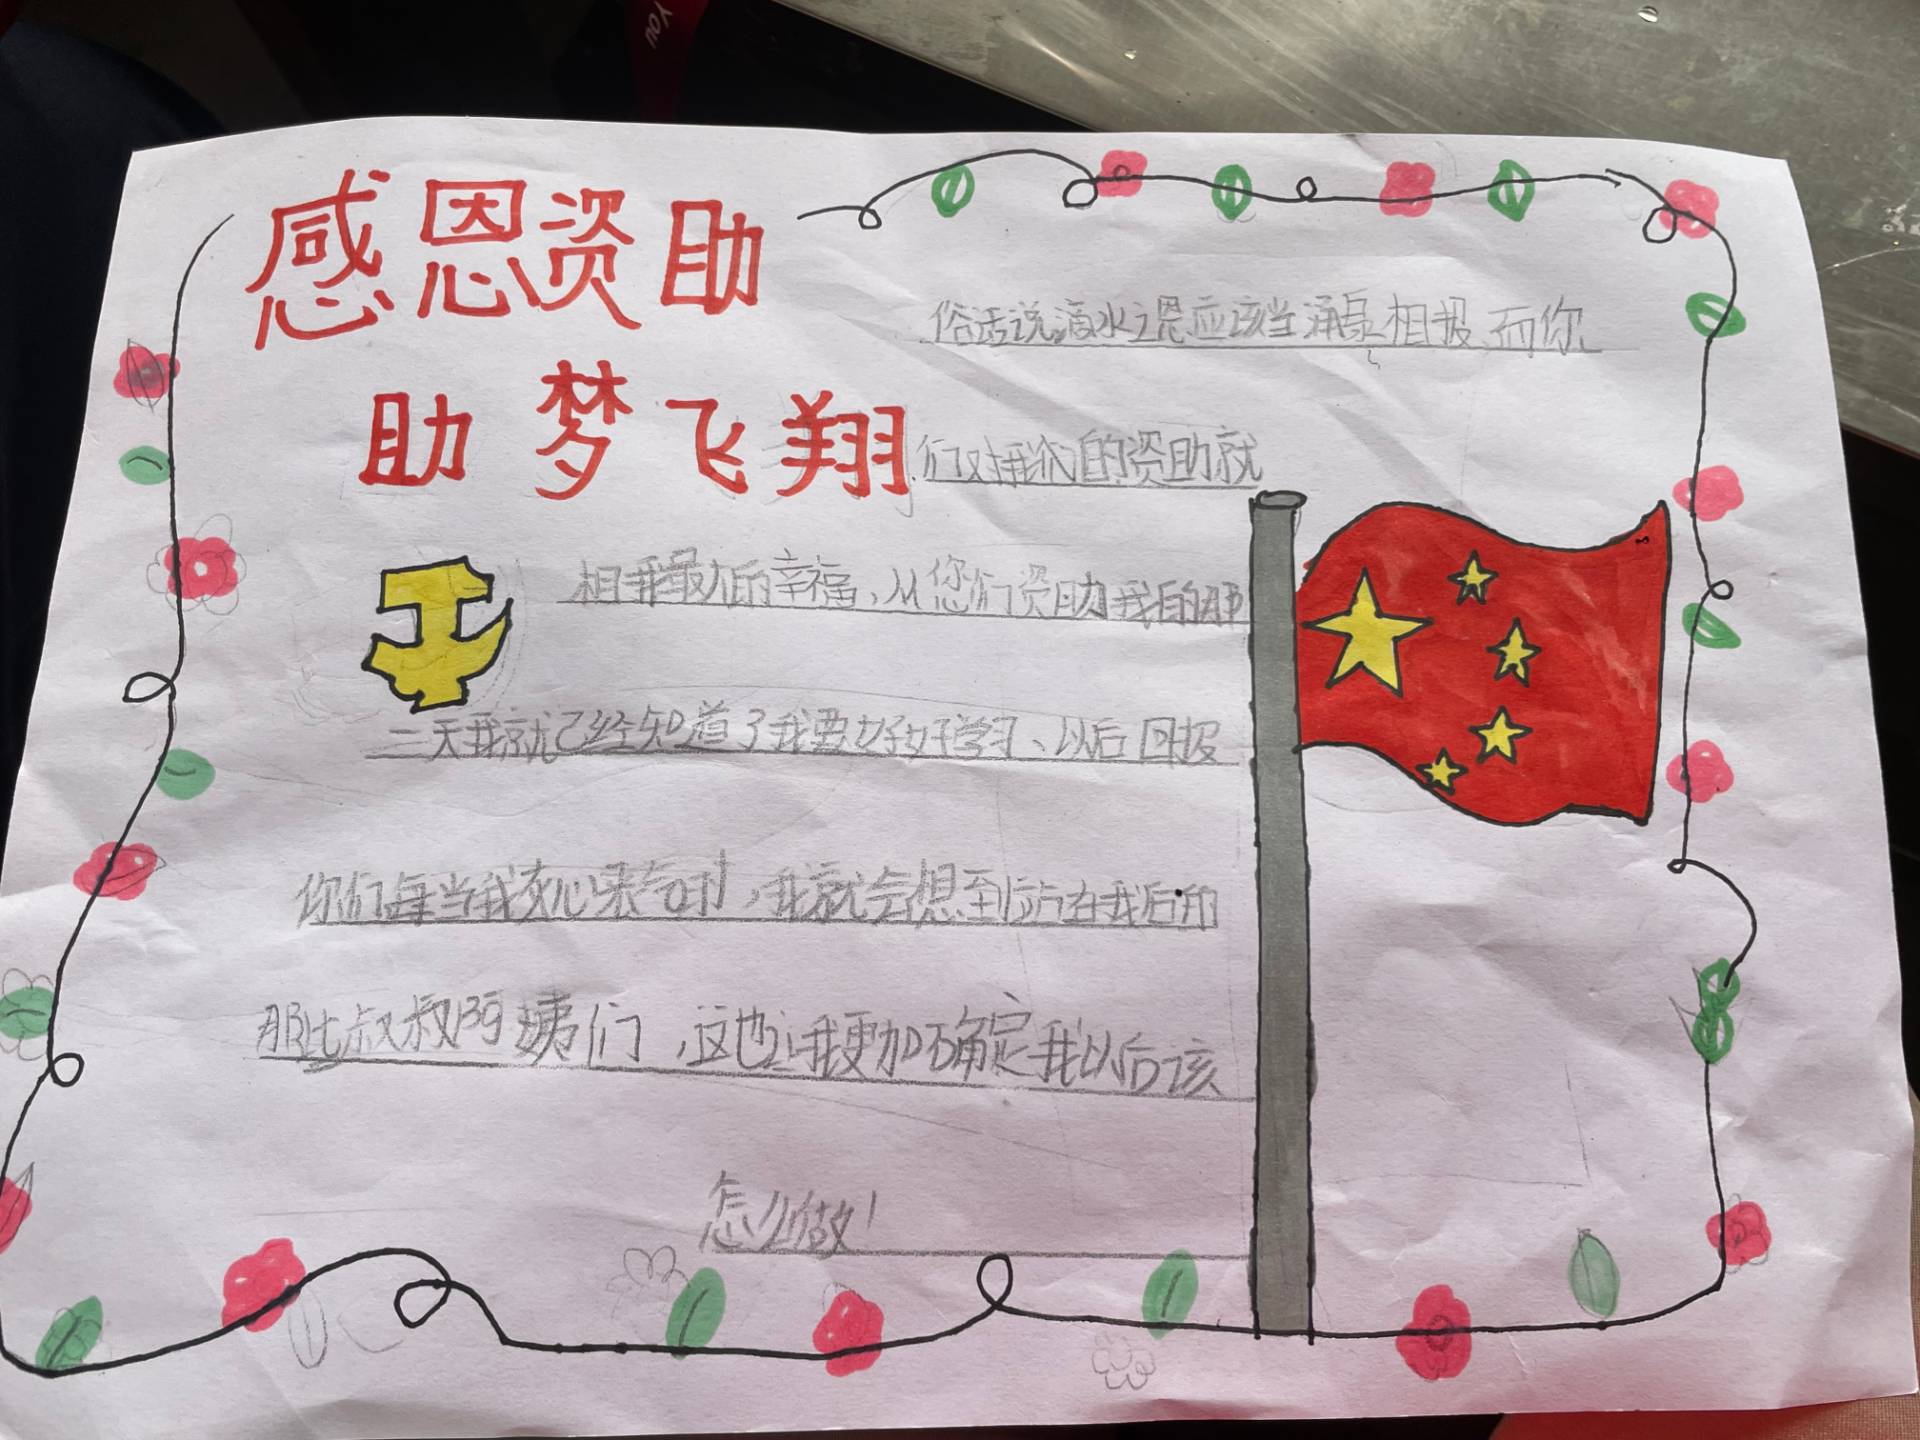 You
感恩资助
助梦飞翔
俗话说滴水之恩应该当涌泉相报、而你
们对我们的资助就
相我最大的幸福、从您们资助我的那
二天我就已经知道了我要好好学习、以后回报
你们每当我灰心丧气时，我就会想到站在我后的
那比叔叔阿姨们，这也让我更加确定我以后该
怎么做！